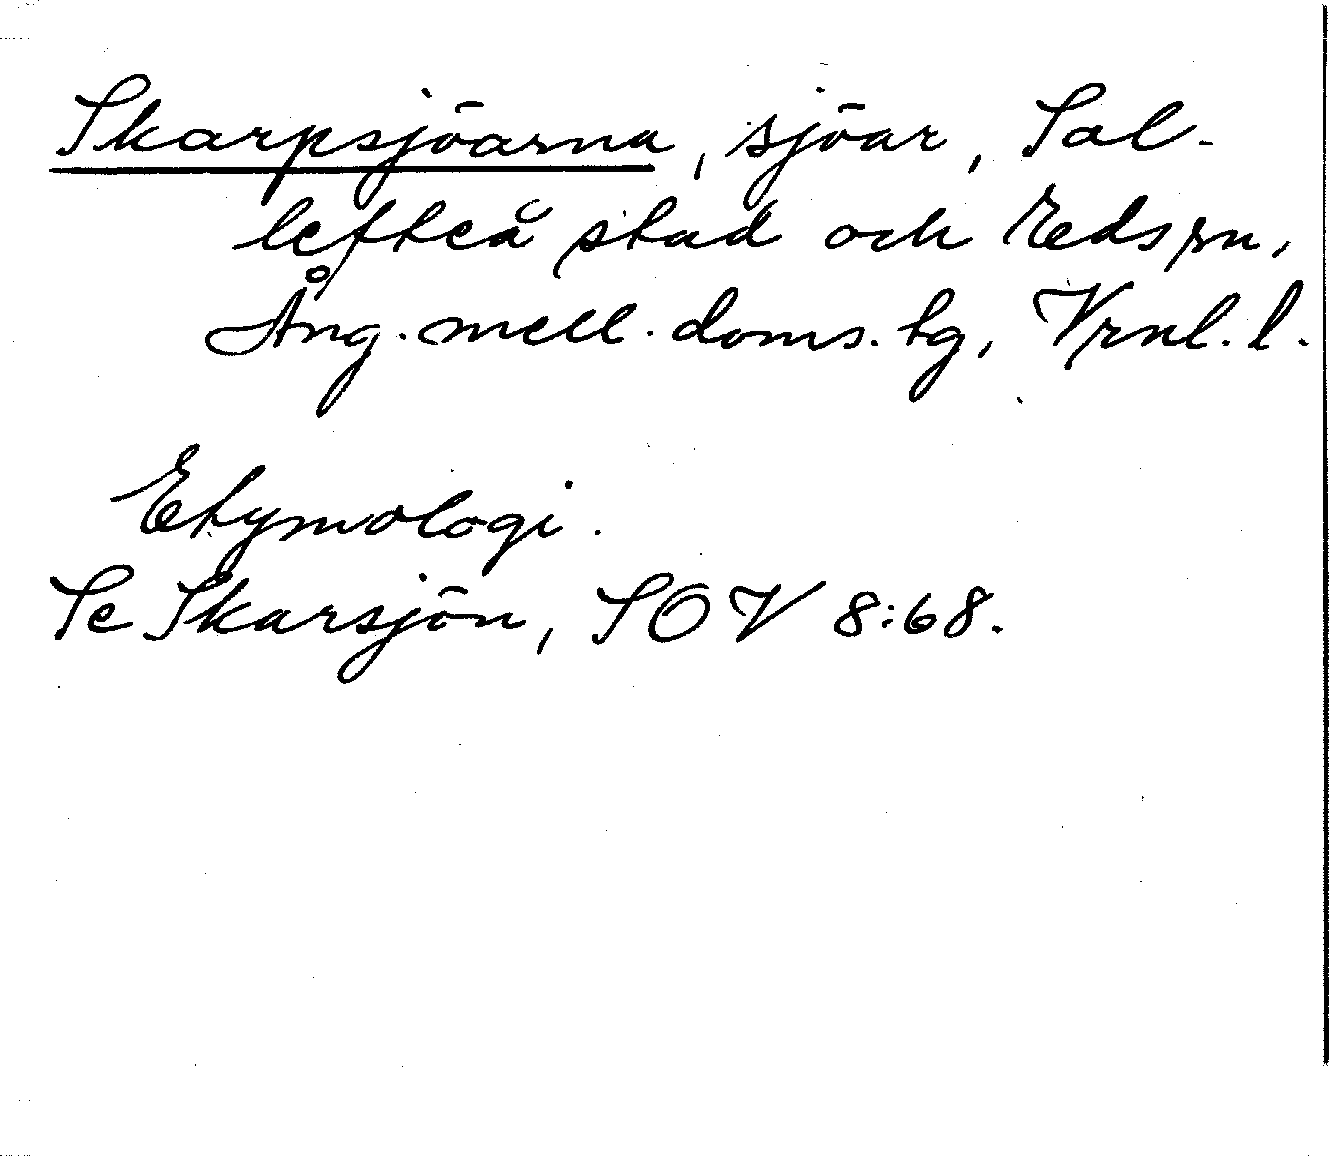 Skarpsjöarna, sjöar, Sol-
lefteå stad och Eds sn,
Ång. mell. doms. tg, Vrnl. l.
Etymologi.
Se Skarsjön, SOV 8:68.